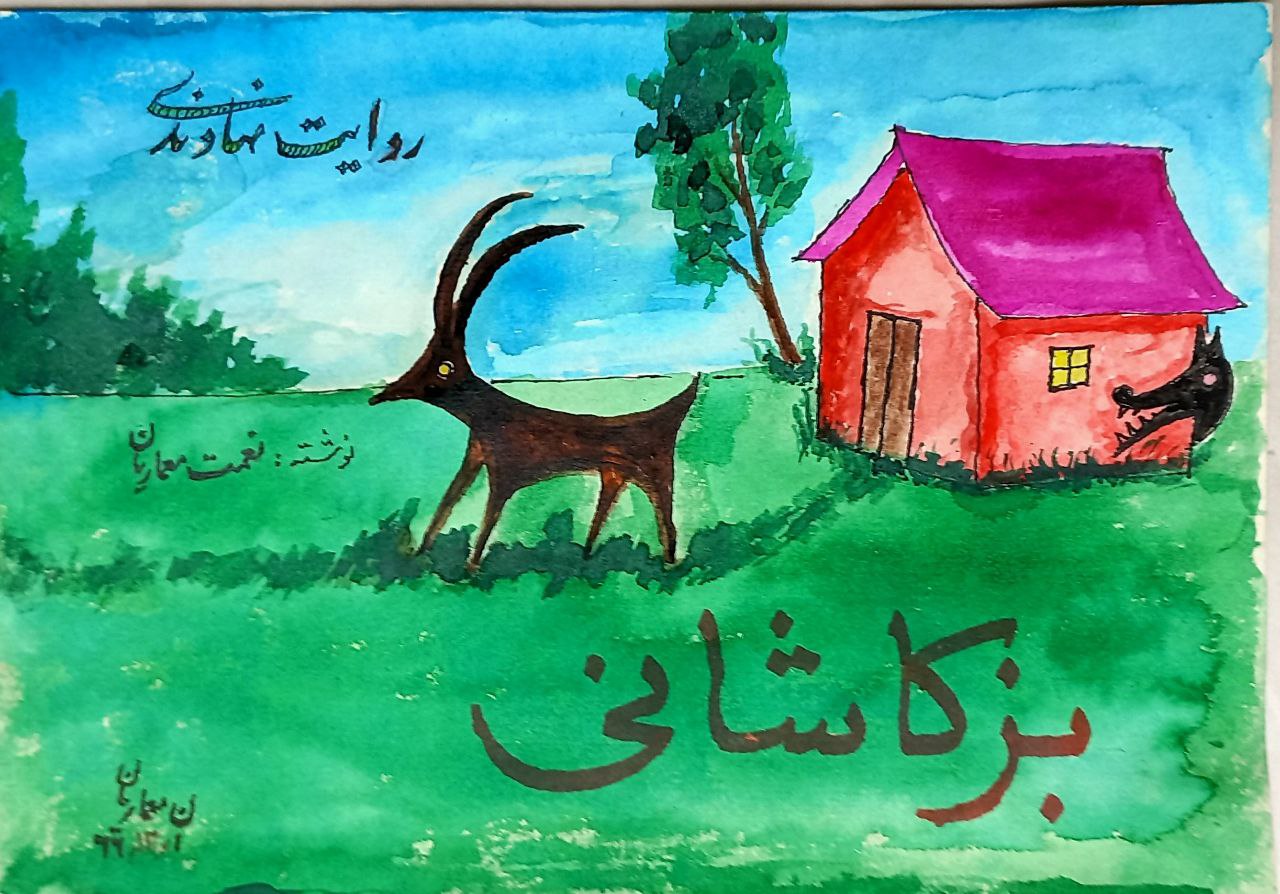 روایت نهاوندی
نوشته: نعمت معماریان
بز کاشانی
ن معماریان